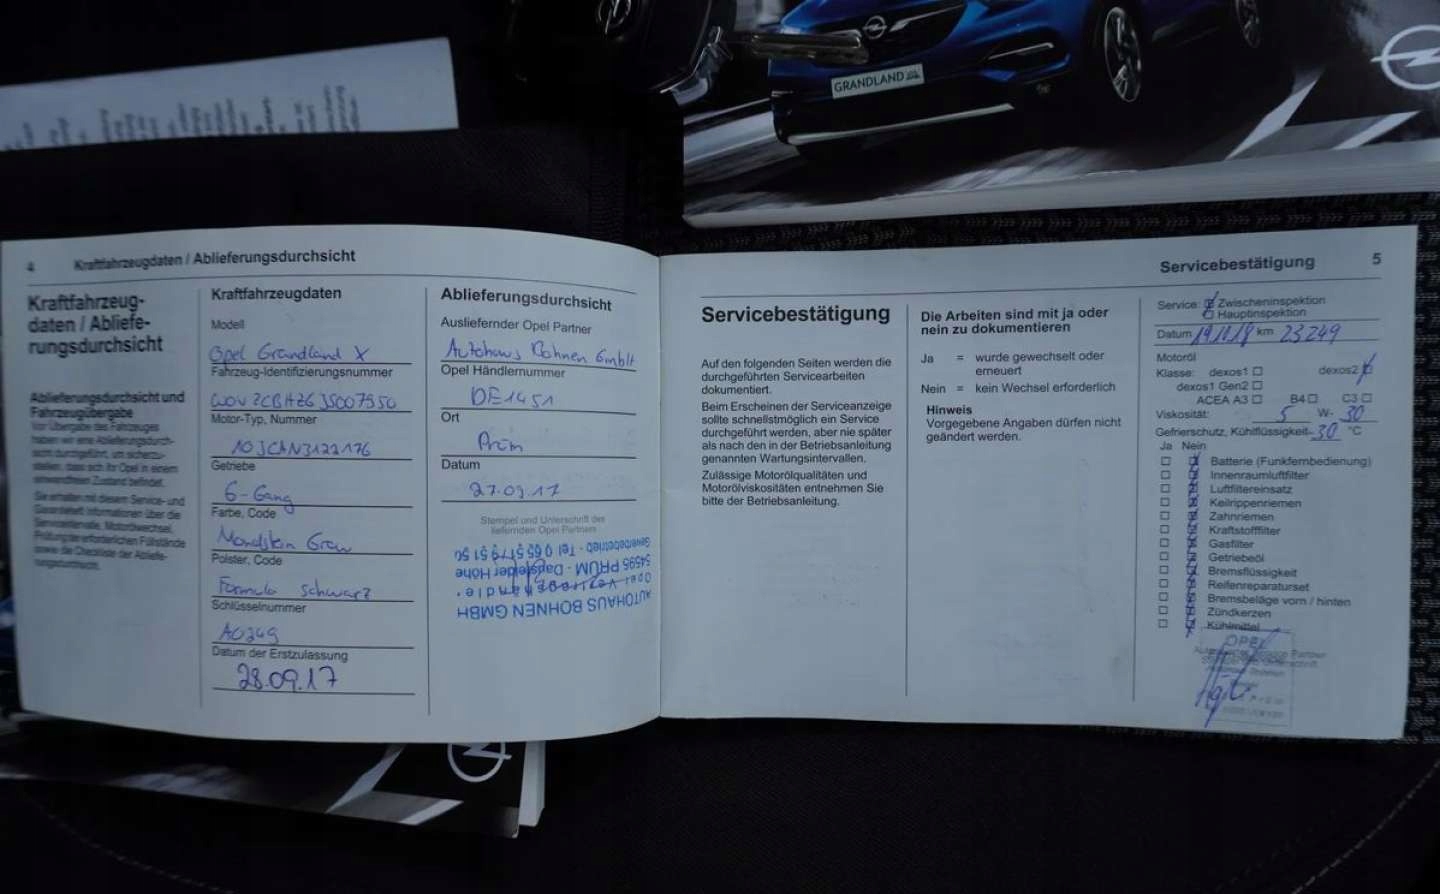 GRANDLAND X
4 Kraftfahrzeugdaten / Ablieferungsdurchsicht
Kraftfahrzeug-
daten / Abliefe-
rungsdurchsicht
Ablieferungsdurchsicht und
Fahrzeugübergabe
Vor Übergabe des Fahrzeuges
haben wir eine Ablieferungsdurch-
sicht durchgeführt, um sicherzu-
stellen, dass sich Ihr Opel in einem
einwandfreien Zustand befindet.
Sie erhalten mit diesem Service- und
Garantieheft Informationen über die
Serviceintervalle, Motorölwechsel,
Prüfung der erforderlichen Füllstände
sowie die Checkliste der Abliefe-
rungsdurchsicht.
Kraftfahrzeugdaten
Modell
Opel Grandland X
Fahrzeug-Identifizierungsnummer
Motor-Typ, Nummer
Getriebe
6-Gang
Farbe, Code
Mondstein Grau
Polster, Code
Formula schwarz
Schlüsselnummer
A0349
Datum der Erstzulassung
28.09.17
Ablieferungsdurchsicht
Ausliefernder Opel Partner
Autohaus Bohnen GmbH
Opel Händlernummer
DE1451
Ort
Prüm
Datum
27.09.17
Stempel und Unterschrift des
liefernden Opel Partners
AUTOHAUS BOHNEN GMBH
Opel Vertragshändler
54595 PRÜM - Dausfelder Höhe
Gewerbegebiet - Tel. 0 65 51 / 9 51 50
Servicebestätigung 5
Servicebestätigung
Auf den folgenden Seiten werden die
durchgeführten Servicearbeiten
dokumentiert.
Beim Erscheinen der Serviceanzeige
sollte schnellstmöglich ein Service
durchgeführt werden, aber nie später
als nach den in der Betriebsanleitung
genannten Wartungsintervallen.
Zulässige Motorölqualitäten und
Motorölviskositäten entnehmen Sie
bitte der Betriebsanleitung.
Die Arbeiten sind mit ja oder
nein zu dokumentieren
Ja = wurde gewechselt oder
erneuert
Nein = kein Wechsel erforderlich
Hinweis
Vorgegebene Angaben dürfen nicht
geändert werden.
Service: Zwischeninspektion
Hauptinspektion
Datum 19.11.18 km 23249
Motoröl
Klasse: dexos1 dexos2
dexos1 Gen2
ACEA A3 B4 C3
Viskosität: 5 W- 30
Gefrierschutz, Kühlflüssigkeit- 30 °C
Ja Nein
Batterie (Funkfernbedienung)
Innenraumluftfilter
Luftfiltereinsatz
Keilrippenriemen
Zahnriemen
Kraftstofffilter
Gasfilter
Getriebeöl
Bremsflüssigkeit
Reifenreparaturset
Bremsbeläge vorn / hinten
Zündkerzen
Kühlmittel
OPEL